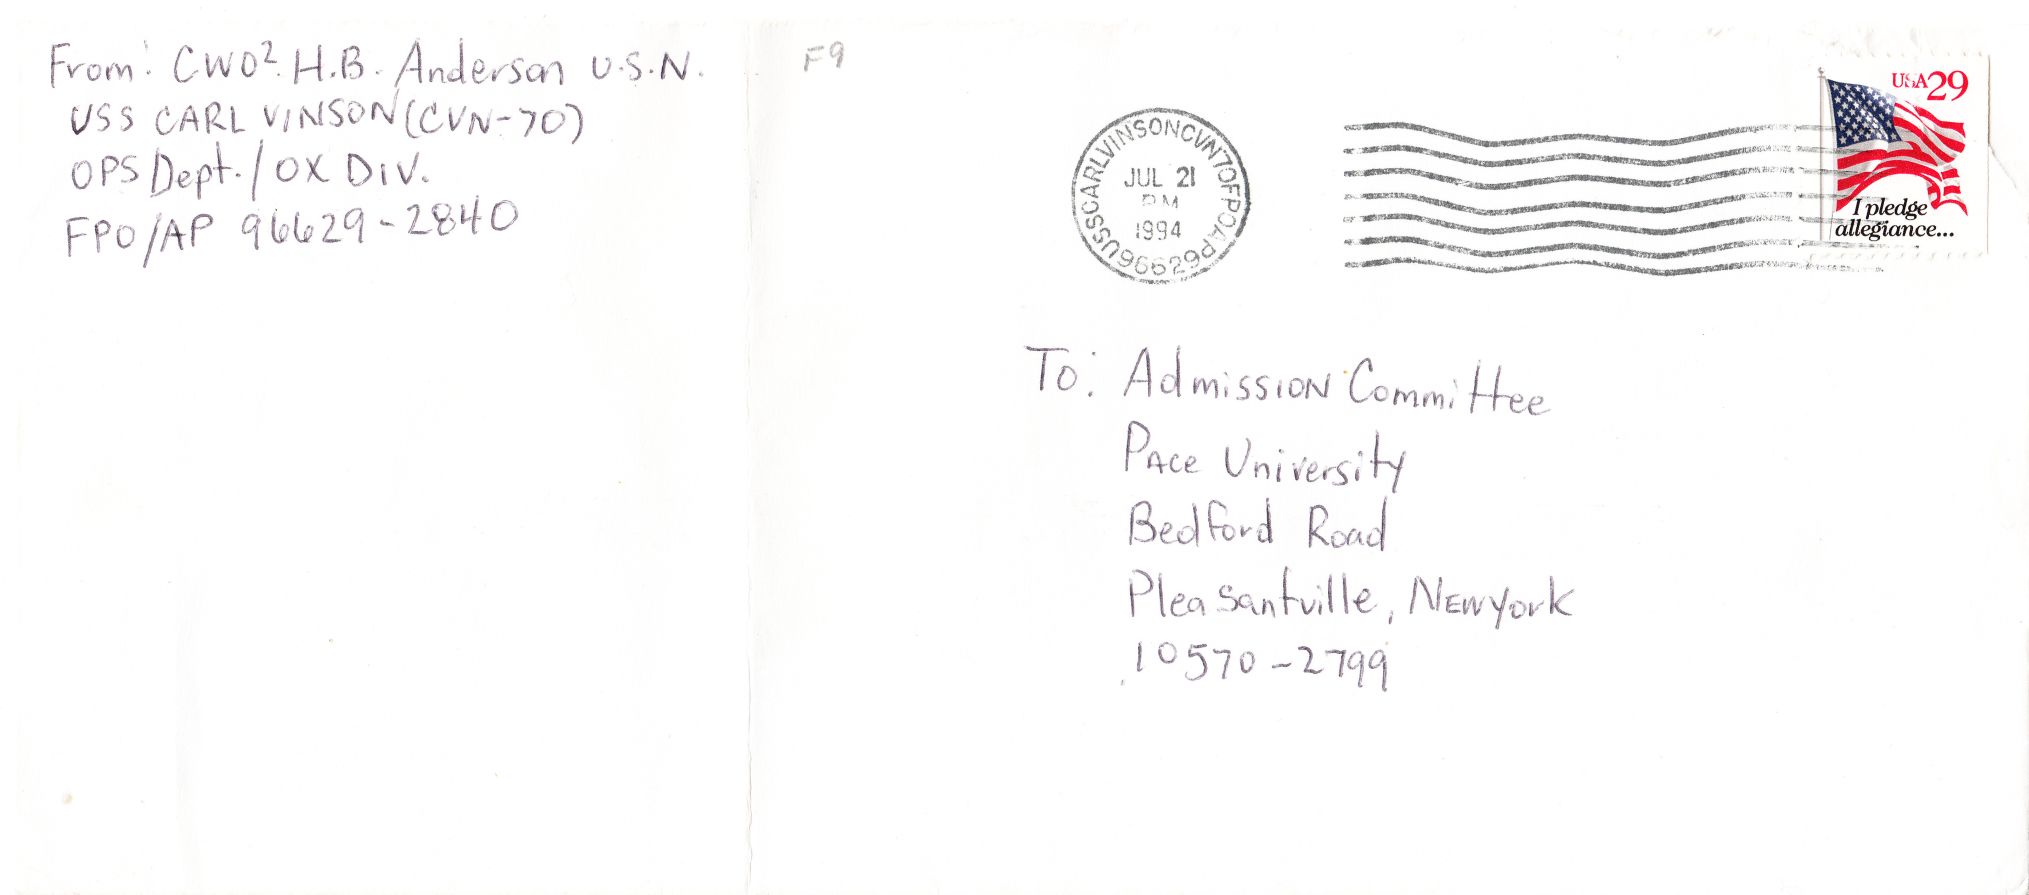 From: CWO2. H.B. Anderson U.S.N.
USS CARL VINSON (CVN-70)
OPS Dept./OX DIV.
FPO/AP 96629-2840
F9
USSCARLVINSONCVN70FPOAP96629
JUL 21
PM
1994
USA 29
I pledge
allegiance...
To: Admission Committee
Pace University
Bedford Road
Pleasantville, New York
10570-2799